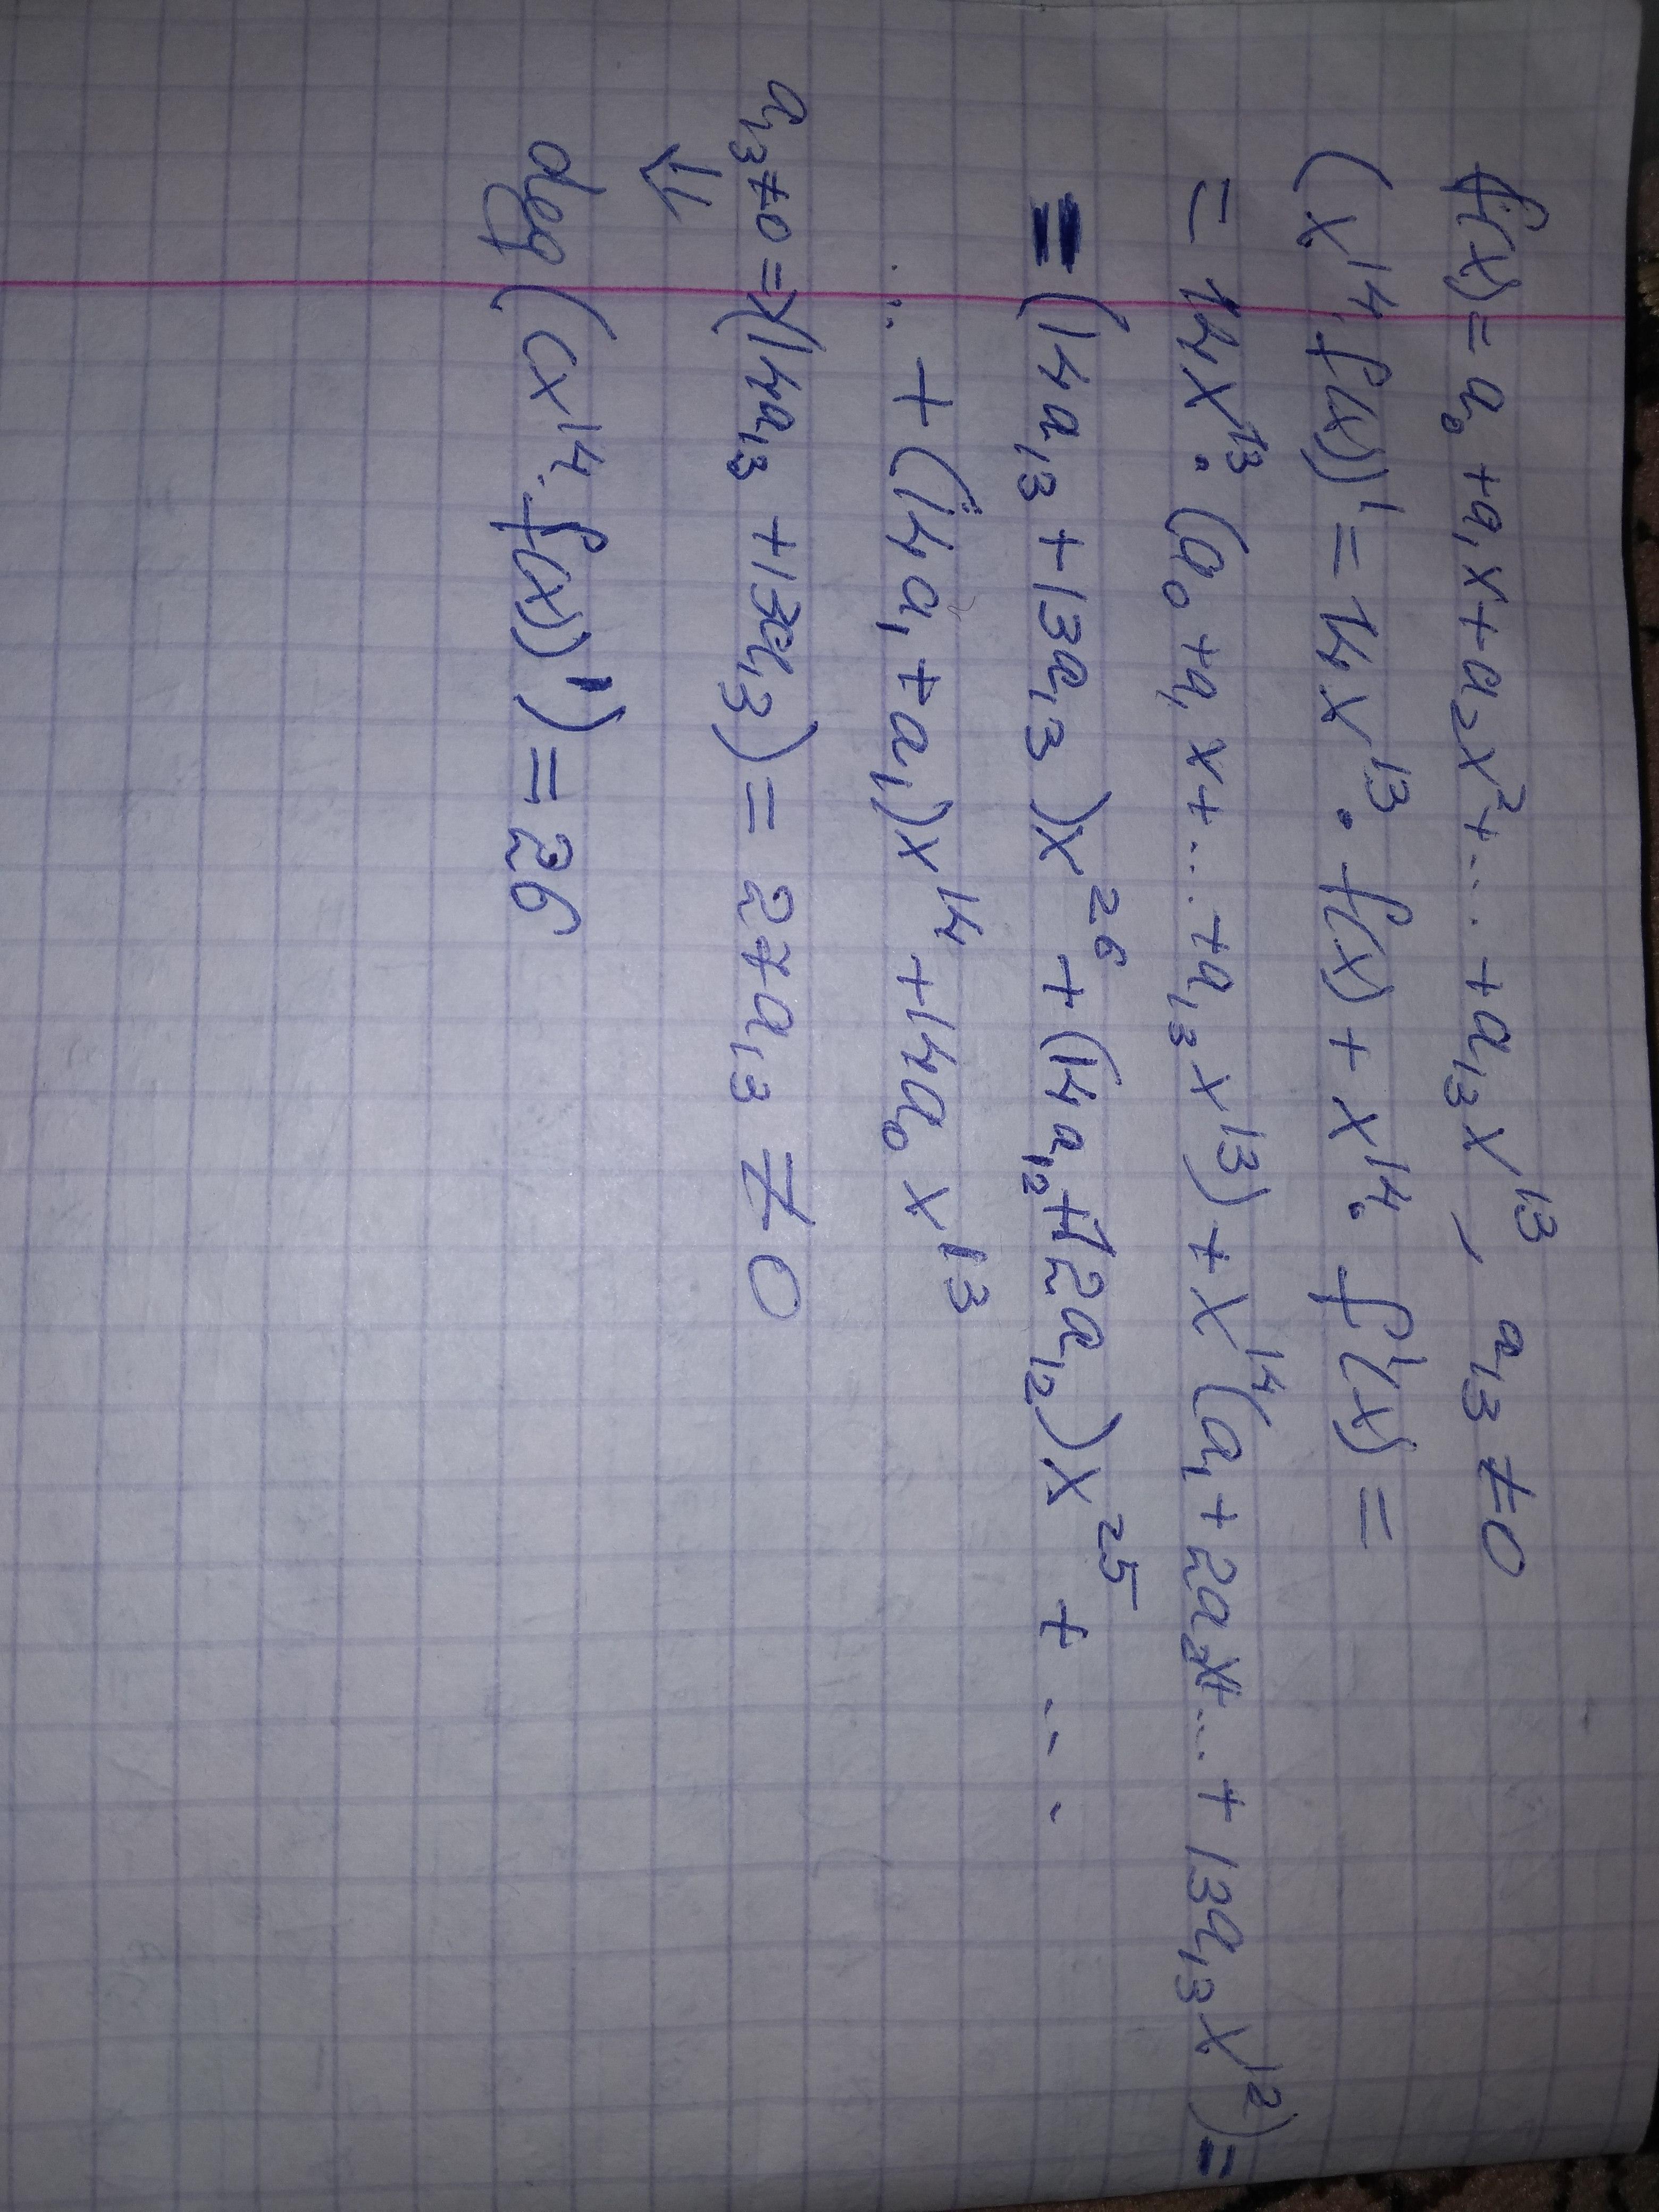 f(x) = a₀ + a₁x + a₂x² + ... + a₁₃x¹³, a₁₃ ≠ 0
(x¹⁴·f(x))' = 14x¹³·f(x) + x¹⁴·f'(x) =
= 14x¹³·(a₀ + a₁x + ... + a₁₃x¹³) + x¹⁴(a₁ + 2a₂x + ... + 13a₁₃x¹²) =
= (14a₁₃ + 13a₁₃)x²⁶ + (14a₁₂ + 12a₁₂)x²⁵ + ...
... + (14a₁ + a₁)x¹⁴ + 14a₀x¹³
a₁₃ ≠ 0 => (14a₁₃ + 13a₁₃) = 27a₁₃ ≠ 0
⇓
deg((x¹⁴·f(x))') = 26